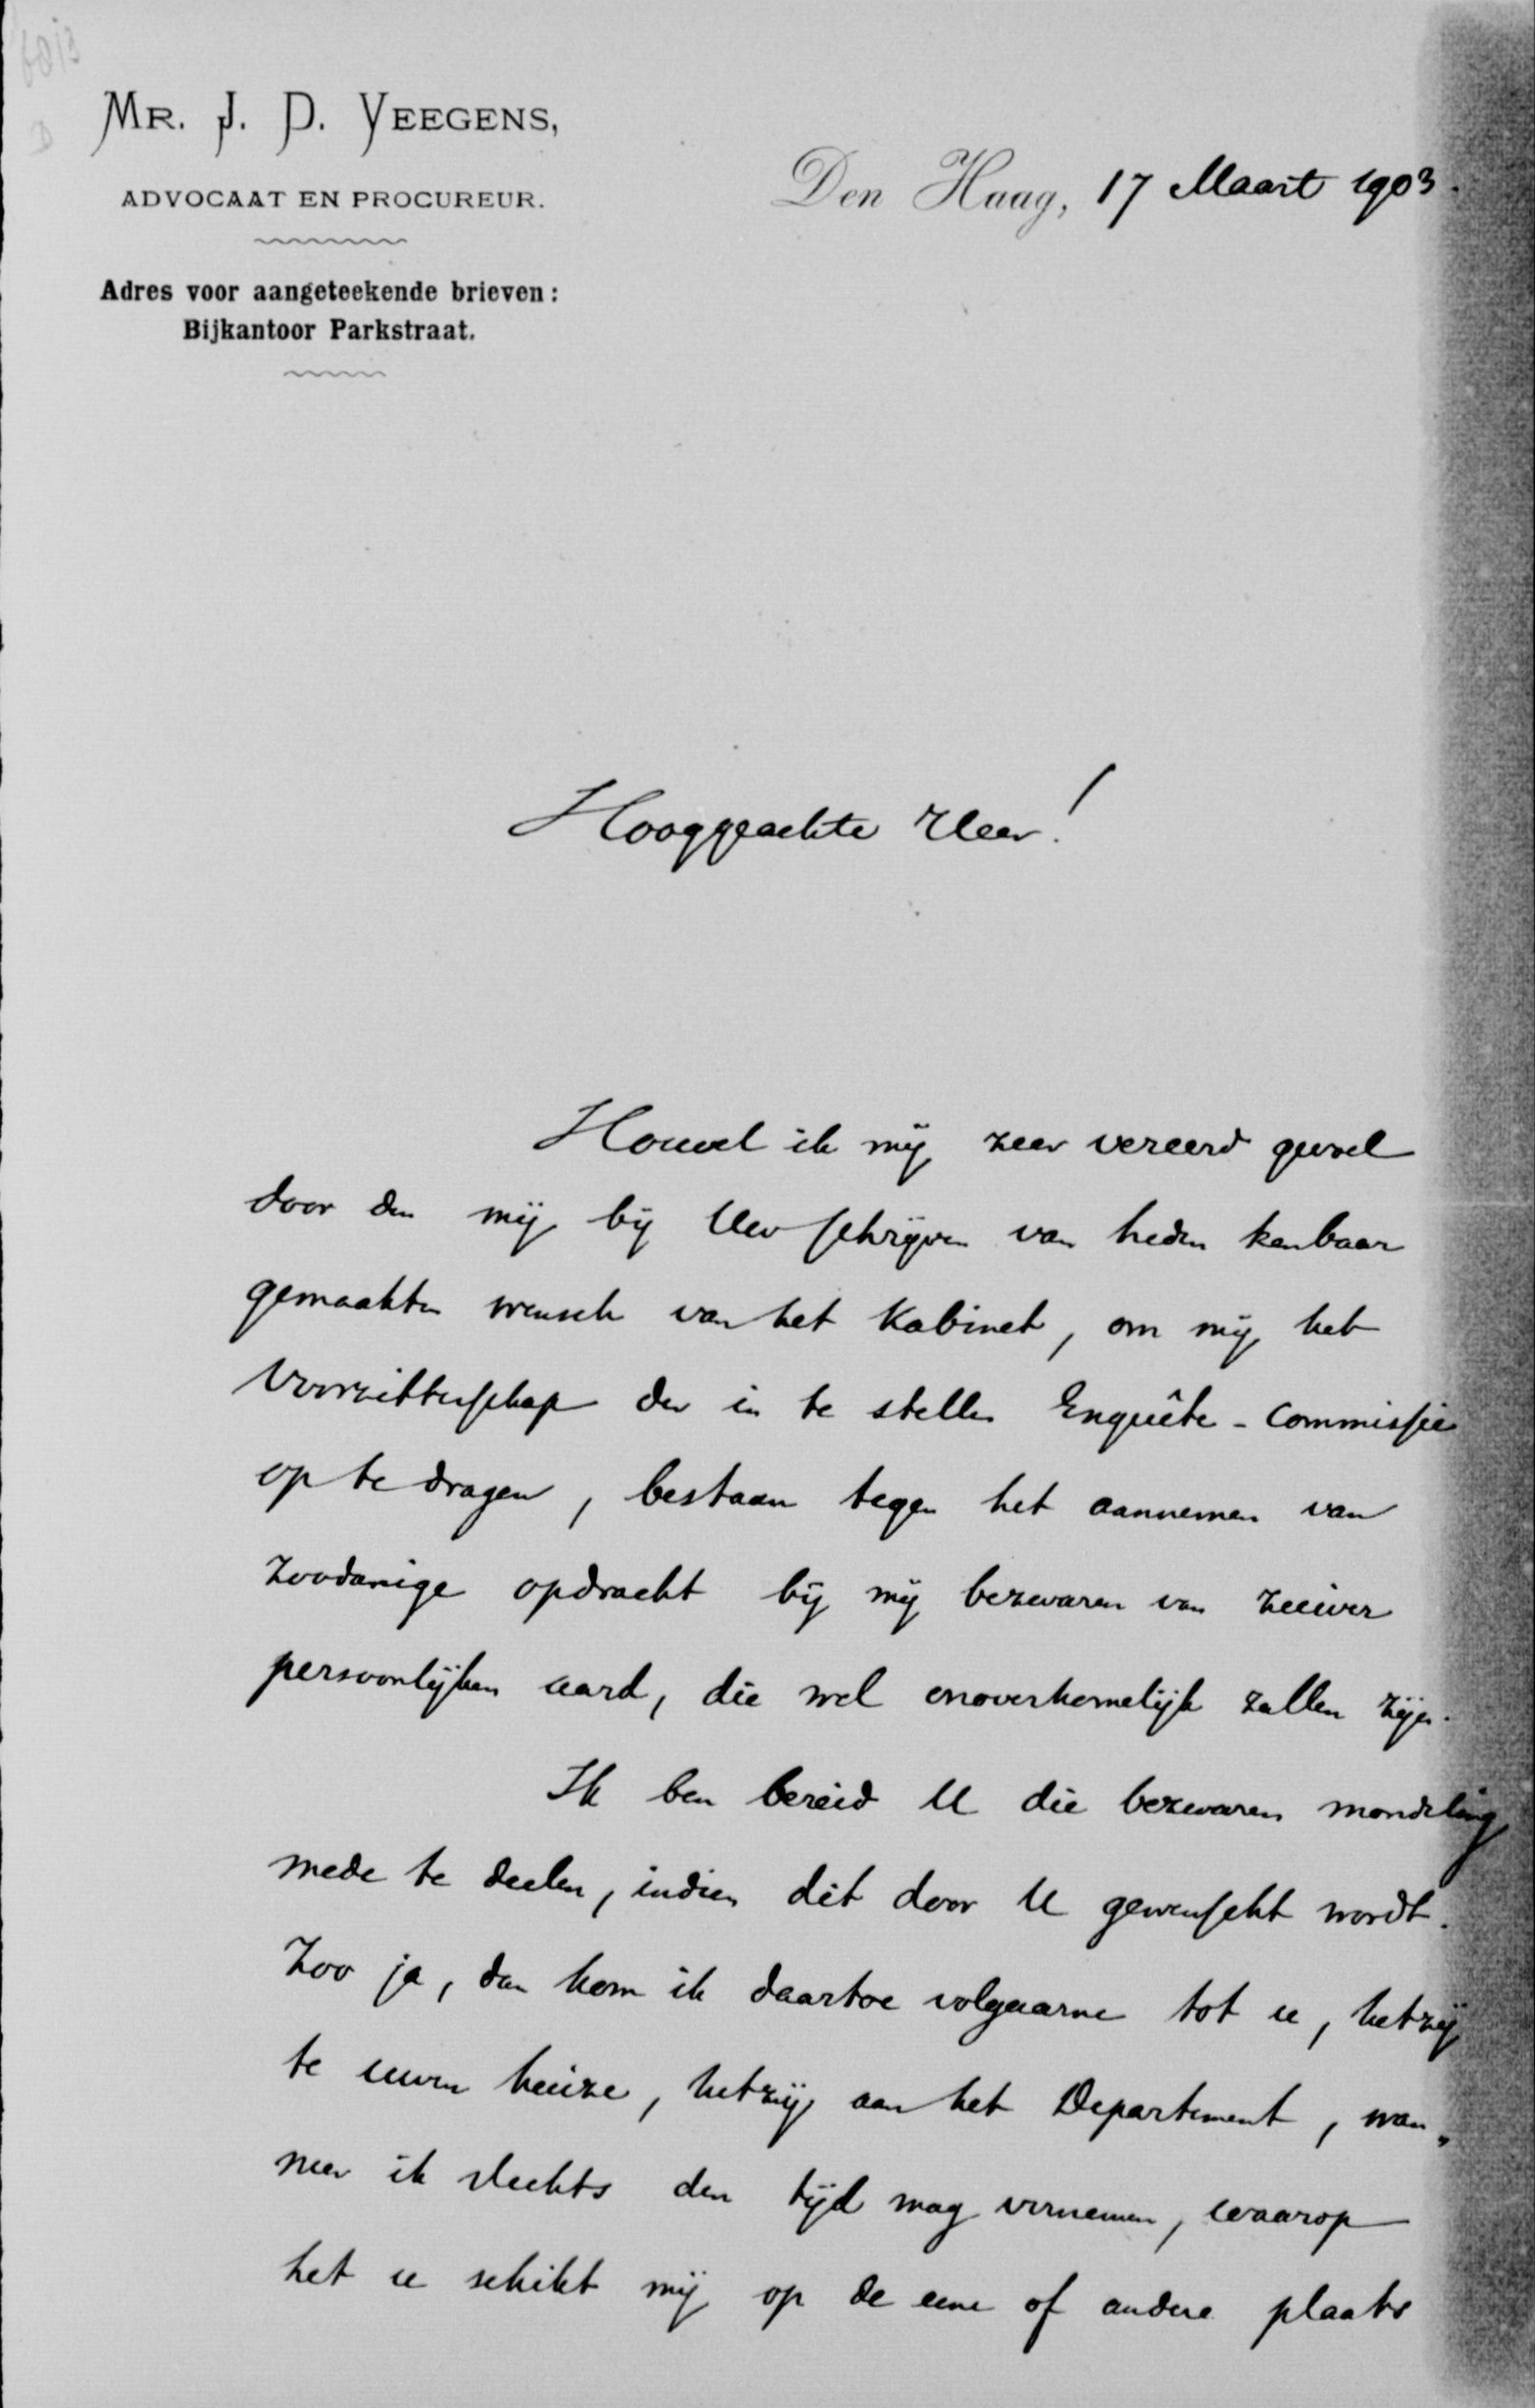 MR. J. D. VEEGENS,
ADVOCAAT EN PROCUREUR.
Adres voor aangeteekende brieven:
Bijkantoor Parkstraat.
Den Haag, 17 Maart 1903.
Hooggeachte Heer!
Hoewel ik mij zeer vereerd gevoel
door den mij bij Uw schrijven van heden kenbaar
gemaakten wensch van het Kabinet, om mij het
Voorzitterschap der in te stellen Enquête-Commissie
op te dragen, bestaan tegen het aannemen van
zoodanige opdracht bij mij bezwaren van zuiver
persoonlijken aard, die wel onoverkomelijk zullen zijn.
Ik ben bereid U die bezwaren mondeling
mede te deelen, indien dit door U gewenscht wordt.
Zoo ja, dan kom ik daartoe volgaarne tot u, hetzij
te uwen huize, hetzij aan het Departement, wan„
neer ik slechts den tijd mag vernemen, waarop
het u schikt mij op de eene of andere plaats